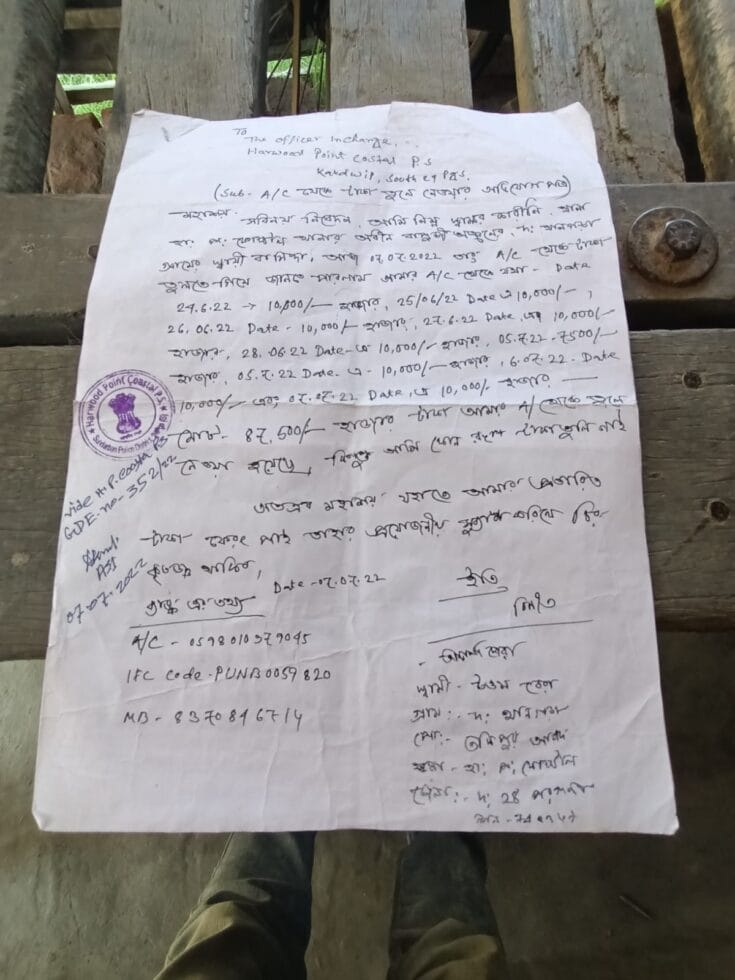 To
The officer Incharge,
Harwood Point Costal P.S
Kakdwip, South 24 Pgs,
(Sub - A/C থেকে টাকা তুলে নেওয়ার অভিযোগ পত্র)
মহাশয়,
সবিনয় নিবেদন, আমি নিম্ন স্বাক্ষর কারীনি, থানা
হা: প: কোস্টাল থানার অধীন
গ্রামের স্থায়ী বাসিন্দা, আজ 07.07.2022 তাং A/C থেকে টাকা
তুলতে গিয়ে জানতে পারলাম আমার A/C থেকে যথা - Date
24.6.22 → 10,000/- হাজার, 25/06/22 Date এ 10,000/-,
26.06.22 Date - 10,000/- হাজার, 27.6.22 Date, এ 10,000/-
হাজার, 28.06.22 Date-এ 10,000/- হাজার, 05.7.22 - 7500/-
হাজার, 05.7.22 Date এ - 10,000/- হাজার, 6.07.22 - Date
10,000/- এবং 07.07.22 Date, এ 10,000/- হাজার —
মোট - 87,500/- হাজার টাকা আমার A/C থেকে তুলে
নেওয়া হয়েছে, কিন্তু আমি কোন রূপ টাকা তুলি নাই
অতএব মহাশয় যাহাতে আমার প্রতারিত
টাকা ফেরৎ পাই তাহার প্রয়োজনীয় করিলে চির
কৃতজ্ঞ থাকিব,
Date - 07.07.22
ইতি
বিনীত
A/C - 0598010379045
IFC Code - PUNB0059820
MB - 8370846714
স্বামী - উত্তম
গ্রাম: - দ:
পো: -
থানা - হা: প: কোস্টাল
জেলা: - দ: ২৪ পরগনা
Harwood Point Coastal P.S.
Sundarban Police District
Vide H.P. Coastal PS
GDE. no - 352/22
ASI
07.07.2022